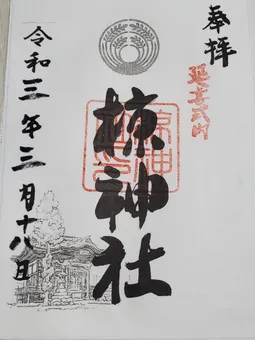 奉拝
延喜式内
椋神社
令和三年三月十八日